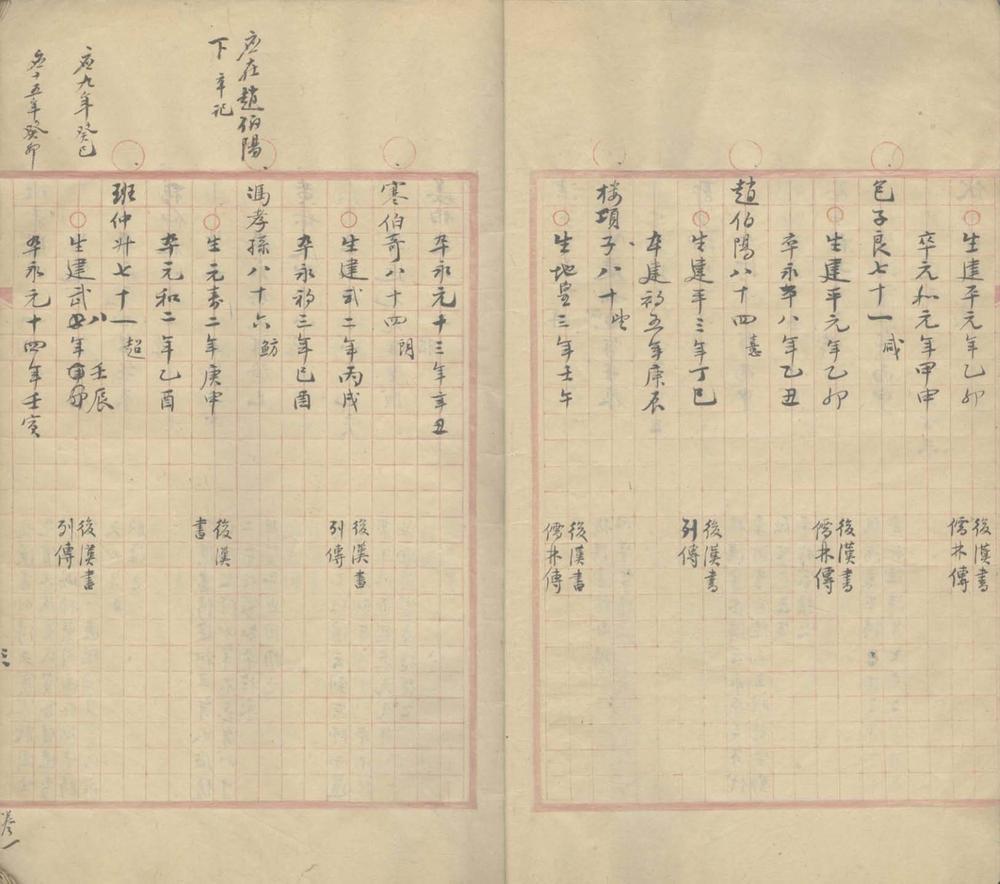 生建平元年乙卯
後漢書
儒林傳
卒元和元年甲申
包子良七十一 咸
生建平元年乙卯
後漢書
儒林傳
卒永平八年乙丑
趙伯陽八十四 憙
生建平三年丁巳
後漢書
列傳
卒建初五年庚辰
樓項子八十 望
生地皇三年壬午
後漢書
儒林傳
卒永元十三年辛丑
寒伯奇八十四 朗
生建武二年丙戌
後漢書
列傳
卒永初三年己酉
應在趙伯陽
下 辛記
馮孝孫八十六 魴
生元壽二年庚申
後漢
書
卒元和二年乙酉
班仲升七十一 超
應九年癸巳
生建武八年壬辰
後漢書
列傳
應十五年癸卯
卒永元十四年壬寅
三
卷一